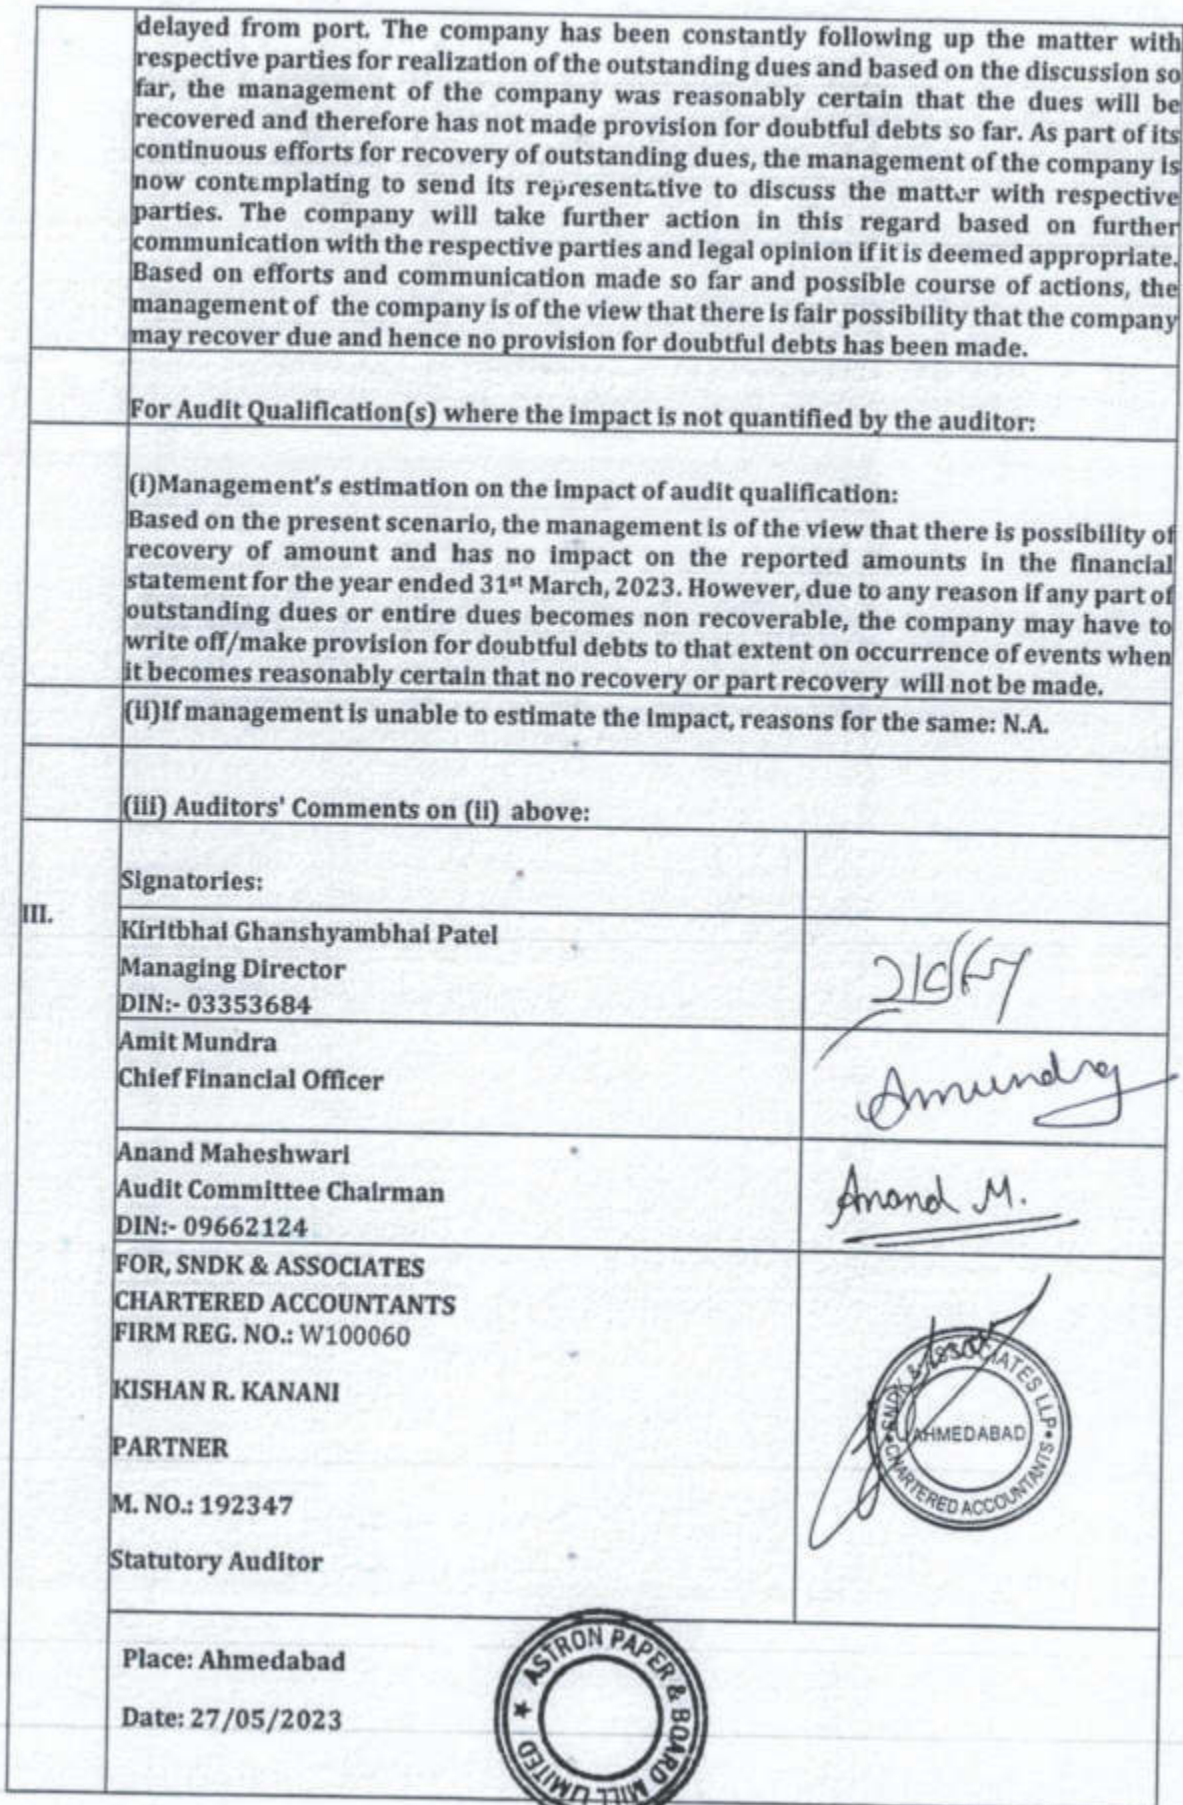 delayed from port. The company has been constantly following up the matter with
respective parties for realization of the outstanding dues and based on the discussion so
far, the management of the company was reasonably certain that the dues will be
recovered and therefore has not made provision for doubtful debts so far. As part of its
continuous efforts for recovery of outstanding dues, the management of the company is
now contemplating to send its representative to discuss the matter with respective
parties. The company will take further action in this regard based on further
communication with the respective parties and legal opinion if it is deemed appropriate.
Based on efforts and communication made so far and possible course of actions, the
management of the company is of the view that there is fair possibility that the company
may recover due and hence no provision for doubtful debts has been made.
For Audit Qualification(s) where the impact is not quantified by the auditor:
(i)Management's estimation on the impact of audit qualification:
Based on the present scenario, the management is of the view that there is possibility of
recovery of amount and has no impact on the reported amounts in the financial
statement for the year ended 31st March, 2023. However, due to any reason if any part of
outstanding dues or entire dues becomes non recoverable, the company may have to
write off/make provision for doubtful debts to that extent on occurrence of events when
it becomes reasonably certain that no recovery or part recovery will not be made.
(ii)If management is unable to estimate the impact, reasons for the same: N.A.
(iii) Auditors' Comments on (ii) above:
III.
Signatories:
Kiritbhai Ghanshyambhai Patel
Managing Director
DIN:- 03353684
Amit Mundra
Chief Financial Officer
Amundra
Anand Maheshwari
Audit Committee Chairman
DIN:- 09662124
Anand M.
FOR, SNDK & ASSOCIATES
CHARTERED ACCOUNTANTS
FIRM REG. NO.: W100060
KISHAN R. KANANI
PARTNER
M. NO.: 192347
Statutory Auditor
SNDK & ASSOCIATES LLP
AHMEDABAD
CHARTERED ACCOUNTANTS
Place: Ahmedabad
Date: 27/05/2023
ASTRON PAPER & BOARD MILL LIMITED